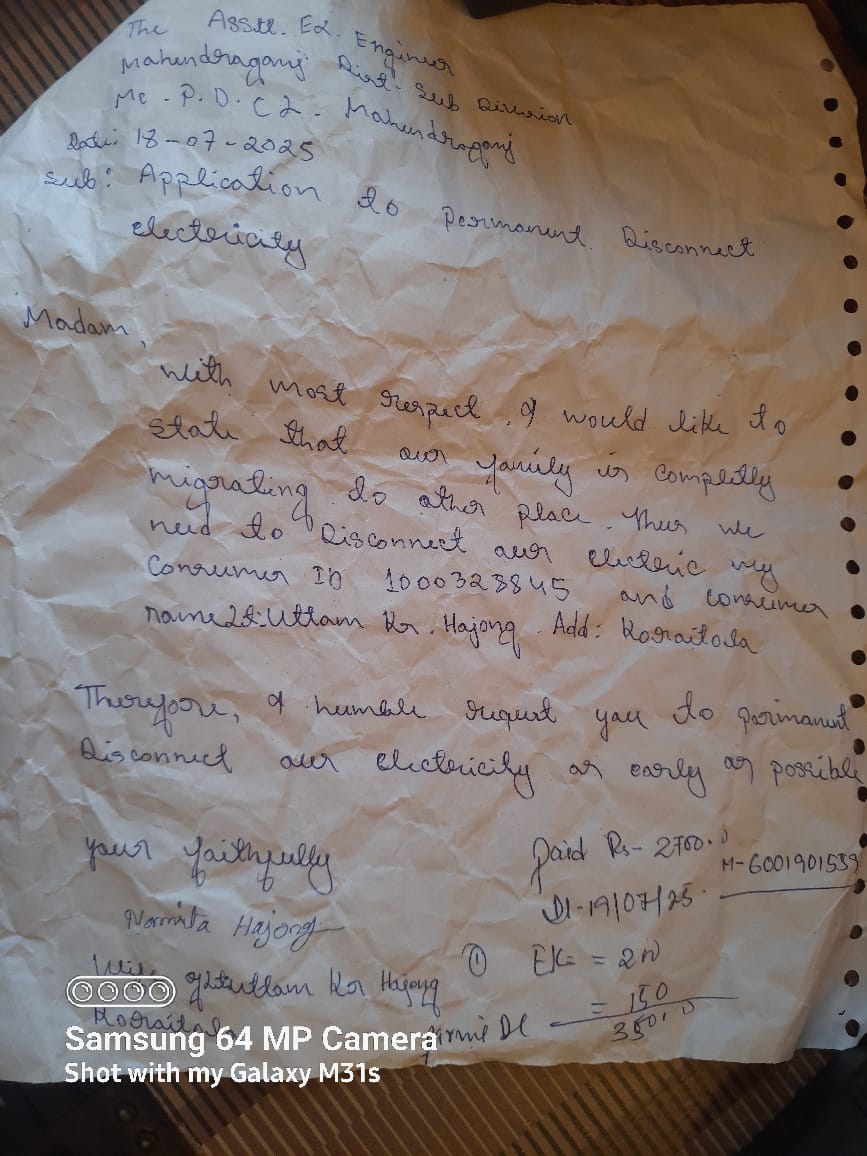 The Asstt. Ex. Engineer
Mahendraganj Dist. Sub Division
Me. P. D. C L. Mahendraganj
Date: 18-07-2025
Sub: Application to Permanent Disconnect
electricity
Madam,
With most respect, I would like to
state that our family is completly
migrating to other place. Thus we
need to Disconnect our electric my
Consumer ID 1000323845 and consumer
name Lt: Uttam Kr. Hajong. Add: Koraitola
Therefore, I humble request you to parimanent
Disconnect our electricity as early as possible
your faithfully
Paid Rs- 2700.0
M-6001901559
Dt-19/07/25.
Nomita Hajong
① =
Lt uttam Kr Hajong
= 150
Koraitola
350.0
Samsung 64 MP Camera
Shot with my Galaxy M31s